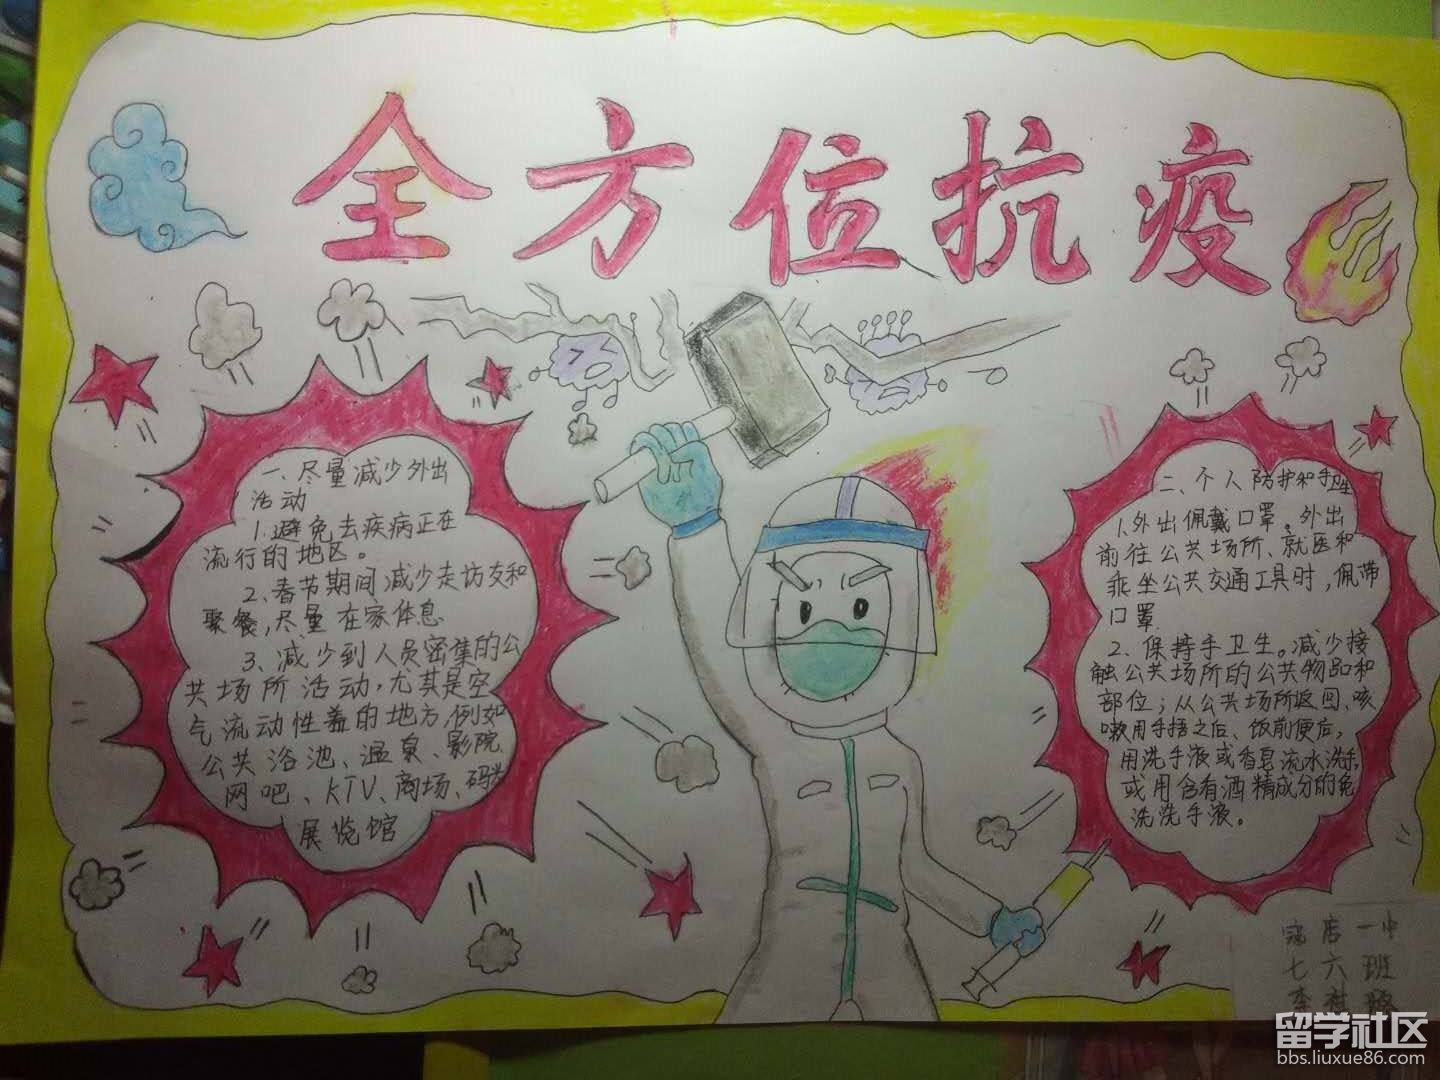 全方位抗疫
一、尽量减少外出
活动
1.避免去疾病正在
流行的地区。
2、春节期间减少走访友和
聚餐,尽量在家休息
3、减少到人员密集的公
共场所活动,尤其是空
气流动性差的地方,例如
公共浴池、温泉、影院
网吧、KTV、商场、码头
展览馆
二、个人防护和手卫生
1.外出佩戴口罩。外出
前往公共场所、就医和
乘坐公共交通工具时,佩带
口罩
2、保持手卫生。减少接
触公共场所的公共物品和
部位;从公共场所返回、咳
嗽用手捂之后、饭前便后,
用洗手液或香皂流水洗手,
或用含有酒精成分的免
洗洗手液。
店一中
七六班
李
留学社区
bbs.liuxue86.com